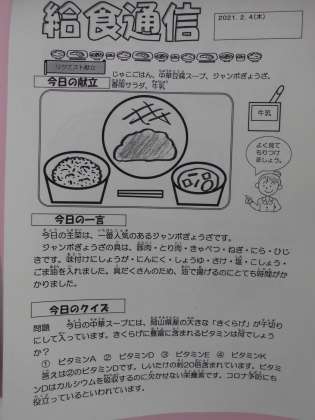 給食通信
2021. 2. 4(木)
リクエスト献立
今日の献立
じゃこごはん、中華豆腐スープ、ジャンボぎょうざ、
春雨サラダ、牛乳
牛乳
よく見て
もりつけ
ましょう。
今日の一言
今日の主菜は、一番人気のあるジャンボぎょうざです。
ジャンボぎょうざの具は、豚肉・とり肉・きゃべつ・ねぎ・にら・ひじ
きです。味付けにしょうが・にんにく・しょうゆ・さけ・塩・こしょう・
ごま油を入れました。具だくさんのため、油で揚げるのにとても時間がか
かりました。
今日のクイズ
問題 今日の中華スープには、岡山県産の大きな「きくらげ」が千切り
にして入っています。きくらげに豊富に含まれるビタミンは何でしょう
か？
① ビタミンA ② ビタミンD ③ ビタミンE ④ ビタミンK
答えは②のビタミンDです。しいたけの約20倍含まれています。ビタミ
ンDはカルシウムを吸収するのに欠かせない栄養素です。コロナ予防にも
役立っているといわれています。